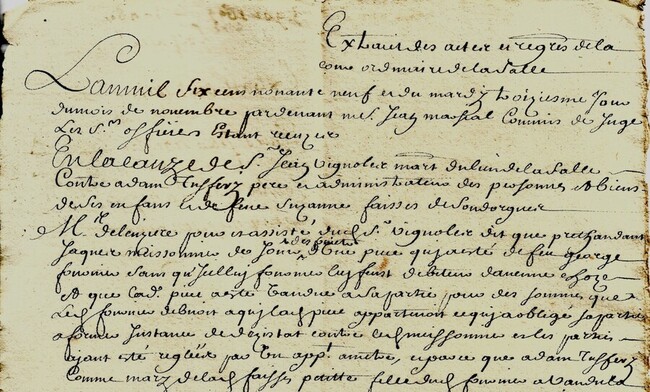 Extrait des actes et regres de la
cour ordinaire de la Salle
Lan mil six cens nonante neuf et du mardy troiziesme jour
du mois de novembre pardevant me S. Jean martial Commis de Juge
les Srs officiers estant recuzes
En la cauze de Sr Jean Vignolier mart du lieu de la Salle
Contre adam pere et administrateur des personnes et biens
de ses enfans et de feue Suzanne faisses de Soudorgues
Mr deleuzire pour et assisté dud Sr Vignolier dit que prethandant
Jaques maissonnie de Jouir d'Une piece qui a esté de feu george
sans qu'Jcelluy luy feust debiteur daucune choze
Et que lad piece a esté Vandue a sa partie pour des sommes que
led debvoit a qui lad piece appartenoit ce qui a obligé sa partie
a former Instance de desistat contre led maissonnie et les parties
ayant esté reglées par Un appt et parce que adam
Comme mary de lad faisses petitte fille dud a Vandu la